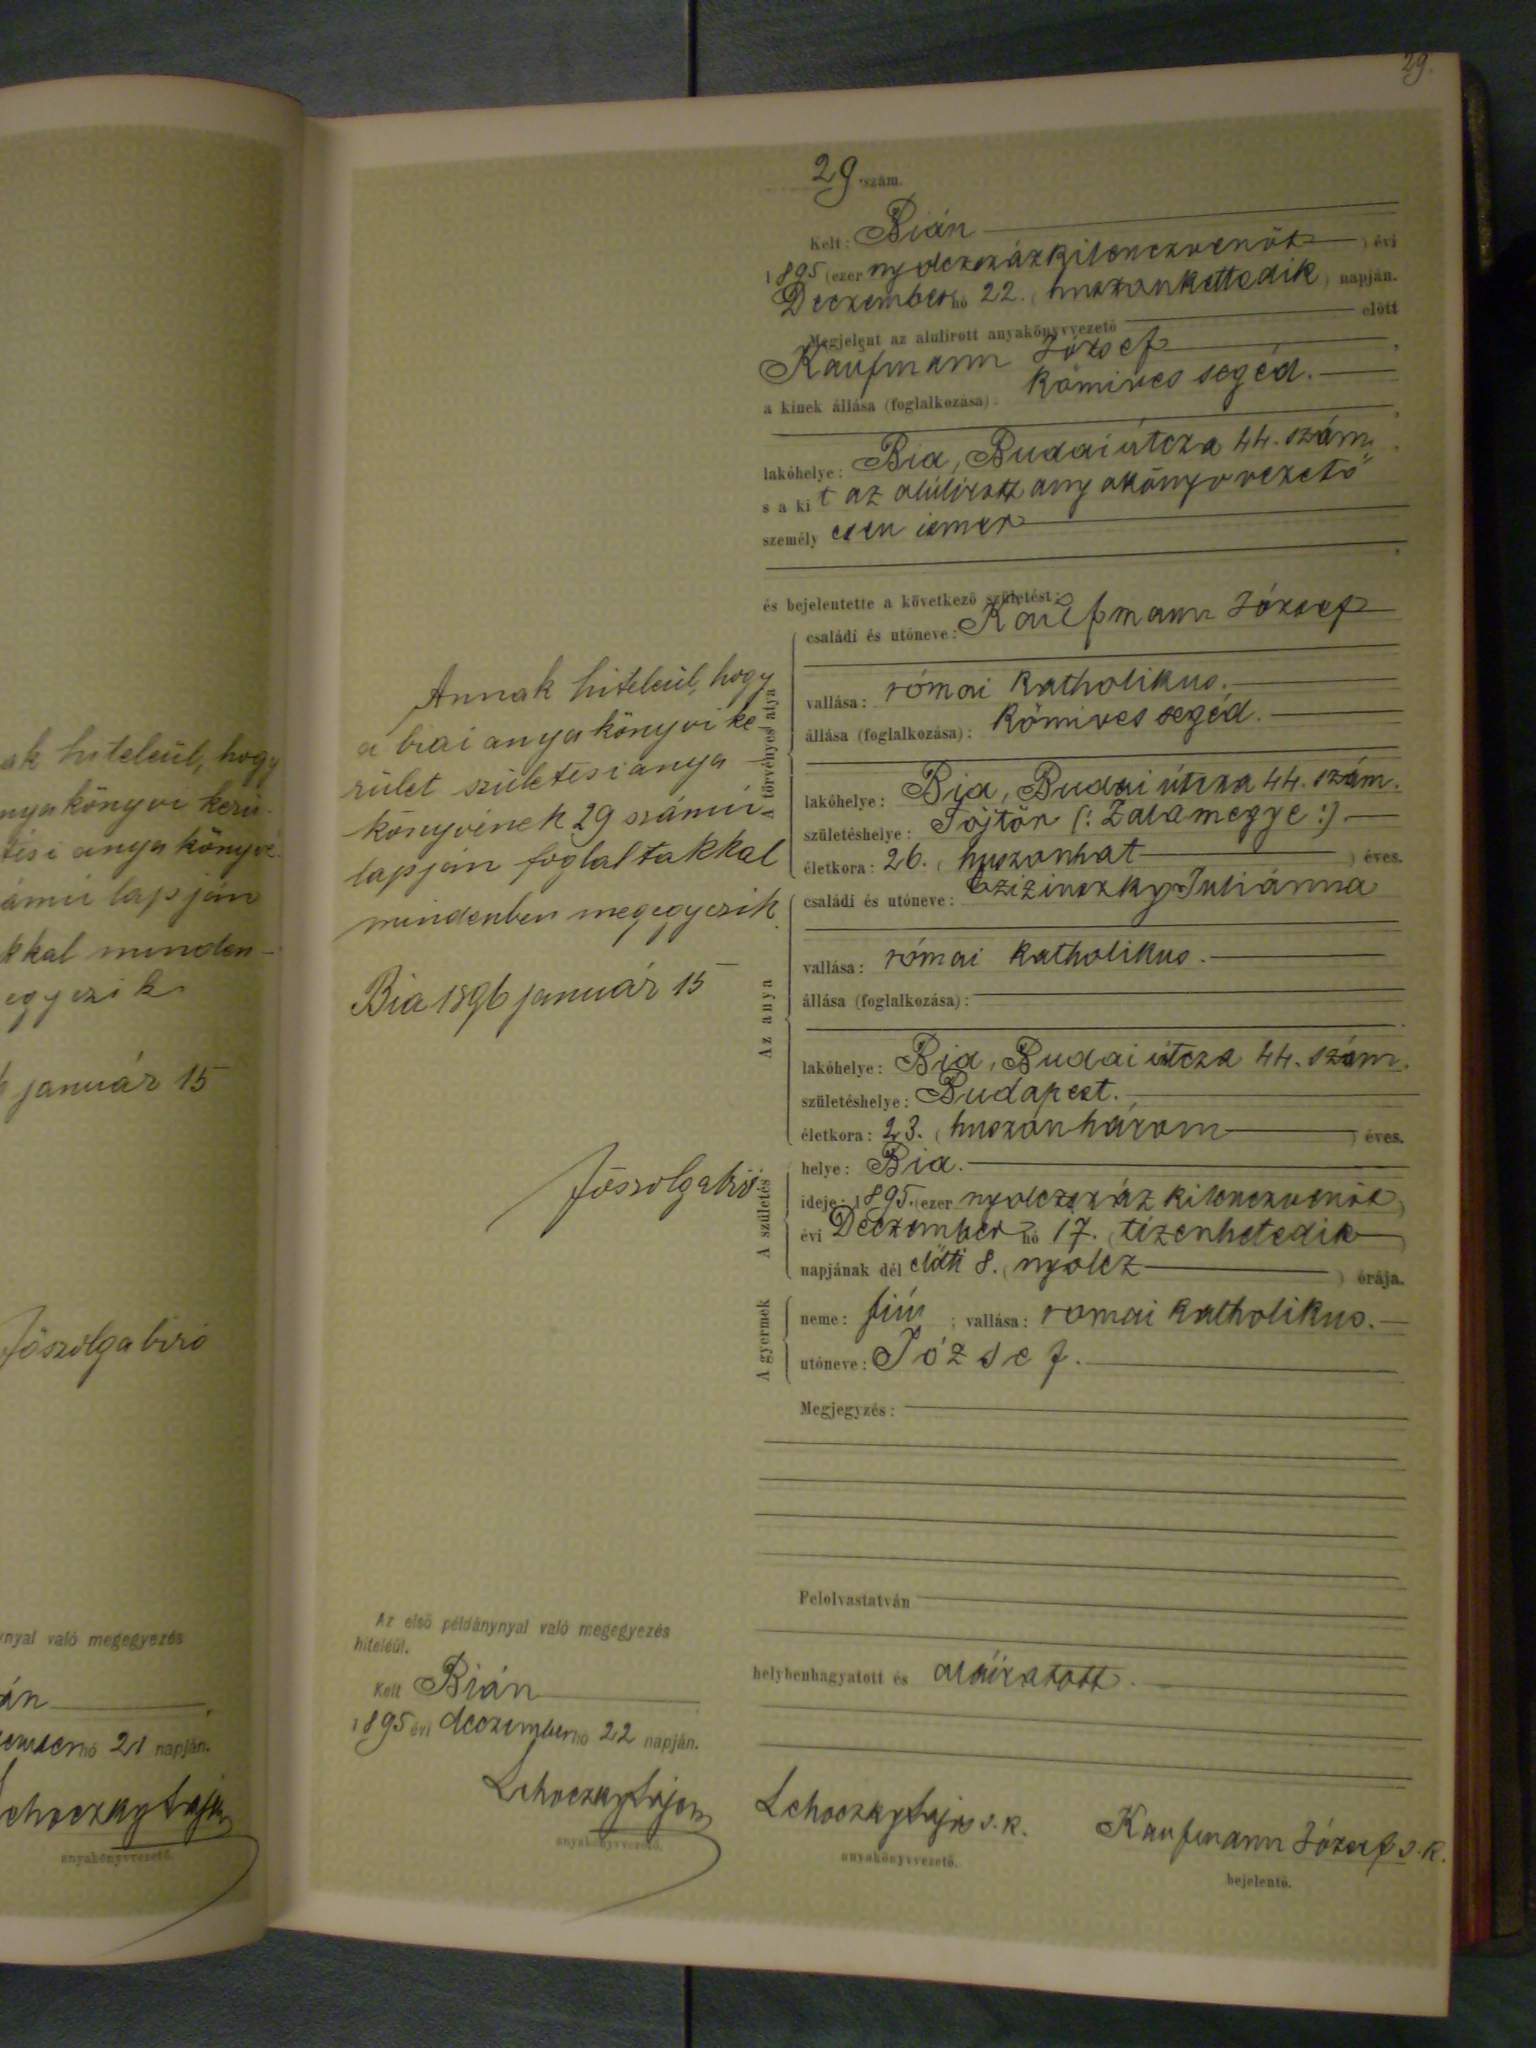 29.
29 szám.
Kelt: Bián
1895 (ezer nyolczszázkilenczvenöt) évi
Deczember hó 22. (huszonkettedik) napján.
Megjelent az alulirott anyakönyvvezető előtt
Kaufmann József,
a kinek állása (foglalkozása): kőmives segéd.
lakóhelye: Bia, Budai útcza 44. szám.
s a kit az alúlírott anyakönyvvezető
személyesen ismer
és bejelentette a következő születést:
A törvényes atya
családi és utóneve: Kaufmann József
vallása: római katholikus.
állása (foglalkozása): kőmives segéd.
lakóhelye: Bia, Budai útcza 44. szám.
születéshelye: Söjtör (: Zalamegye :).
életkora: 26. (huszonhat) éves.
Az anya
családi és utóneve: Czizinszky Juliánna
vallása: római katholikus.
állása (foglalkozása):
lakóhelye: Bia, Budai útcza 44. szám.
születéshelye: Budapest.
életkora: 23. (huszonhárom) éves.
A születés
helye: Bia.
ideje: 1895. (ezer nyolczszáz kilenczvenöt)
évi Deczember hó 17. (tizenhetedik)
napjának dél előtti 8. (nyolcz) órája.
A gyermek
neme: fiú; vallása: romai katholikus.
utóneve: József.
Megjegyzés:
Felolvastatván
helybenhagyatott és aláíratott.
Lehoczky Lajos s. k.
anyakönyvvezető.
Kaufmann József s. k.
bejelentő.
Annak hiteleül, hogy
a biai anyakönyvi ke-
rület születési anya
könyvének 29 számú
lapján foglaltakkal
mindenben megegyezik.
Bia 1896 január 15
főszolgabiró
Az első példánynyal való megegyezés
hiteléül.
Kelt Bián
1895 évi deczember hó 22 napján.
Lehoczky Lajos
anyakönyvvezető.
ak hiteleül, hogy
nyakönyvi kerü-
tési anyakönyvé
ámú lapján
kkal minden-
egyezik
január 15
főszolgabiró
ynyal való megegyezés
án
hó 21 napján.
Lehoczky Lajos
anyakönyvvezető.